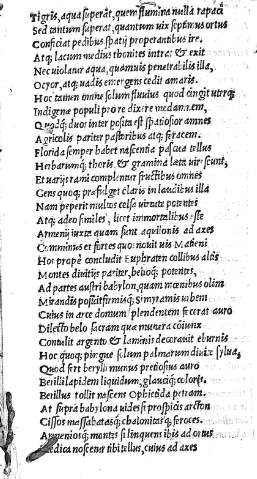 Tigris, aqua superat, quem flumina nulla rapaci
Sed tantum superat, quantum uix septimus ortus
Conficiat pedibus spatij properantibus ire.
Atq; lacum medius thonites intrat & exit
Nec uiolatur aqua, quamuis penetrabilis illa,
Ocyor, atq; uadis emergens cedit amaris.
Hoc tamen omne solum fluuius quod cingit uterq;
Indigenæ populi prore dixere
Quodq; duo inter posita est spatiosior amnes
Agricolis pariter pastoribus atq; feracem.
Florida semper habet nascentia pascua tellus
Herbarumq; thoris, & gramina læta uirescunt,
Et uarijs rami complentur fructibus omnes
Gens quoq; præfulget claris in laudibus illa
Nam peperit multos celsa uirtute potentes
Atq; adeo similes, licet immortalibus esse
Armenij iuxta quam sunt aquilonis ad axes
Comminus et fortes quos nouit uis Matieni
Hos propè concludit Euphraten collibus altis
Montes diuitijs pariter, belloq; potentes,
Ad partes austri babylon, quam moenibus olim
Mirandis posuit firmisq; Simyramis urbem
Cuius in arce domum splendentem fecerat auro
Dilecto belo sacram quæ munera coniunx
Contulit argento & laminis decorauit eburnis
Hoc quoq; pingue solum palmarum diuite sylua,
Quod fert berylli munus pretiosius auro
Berilli lapidem liquidum, glaucijq; coloris.
Berillus tollit nascens Ophietida petram.
At supra babylona uides si prospicis arcton
Cissos massabatasq; chalonitasq; feroces.
Armeniosq; montes si linquens ibis ad ortus
Medica noscentur tibi tellus, cuius ad axes